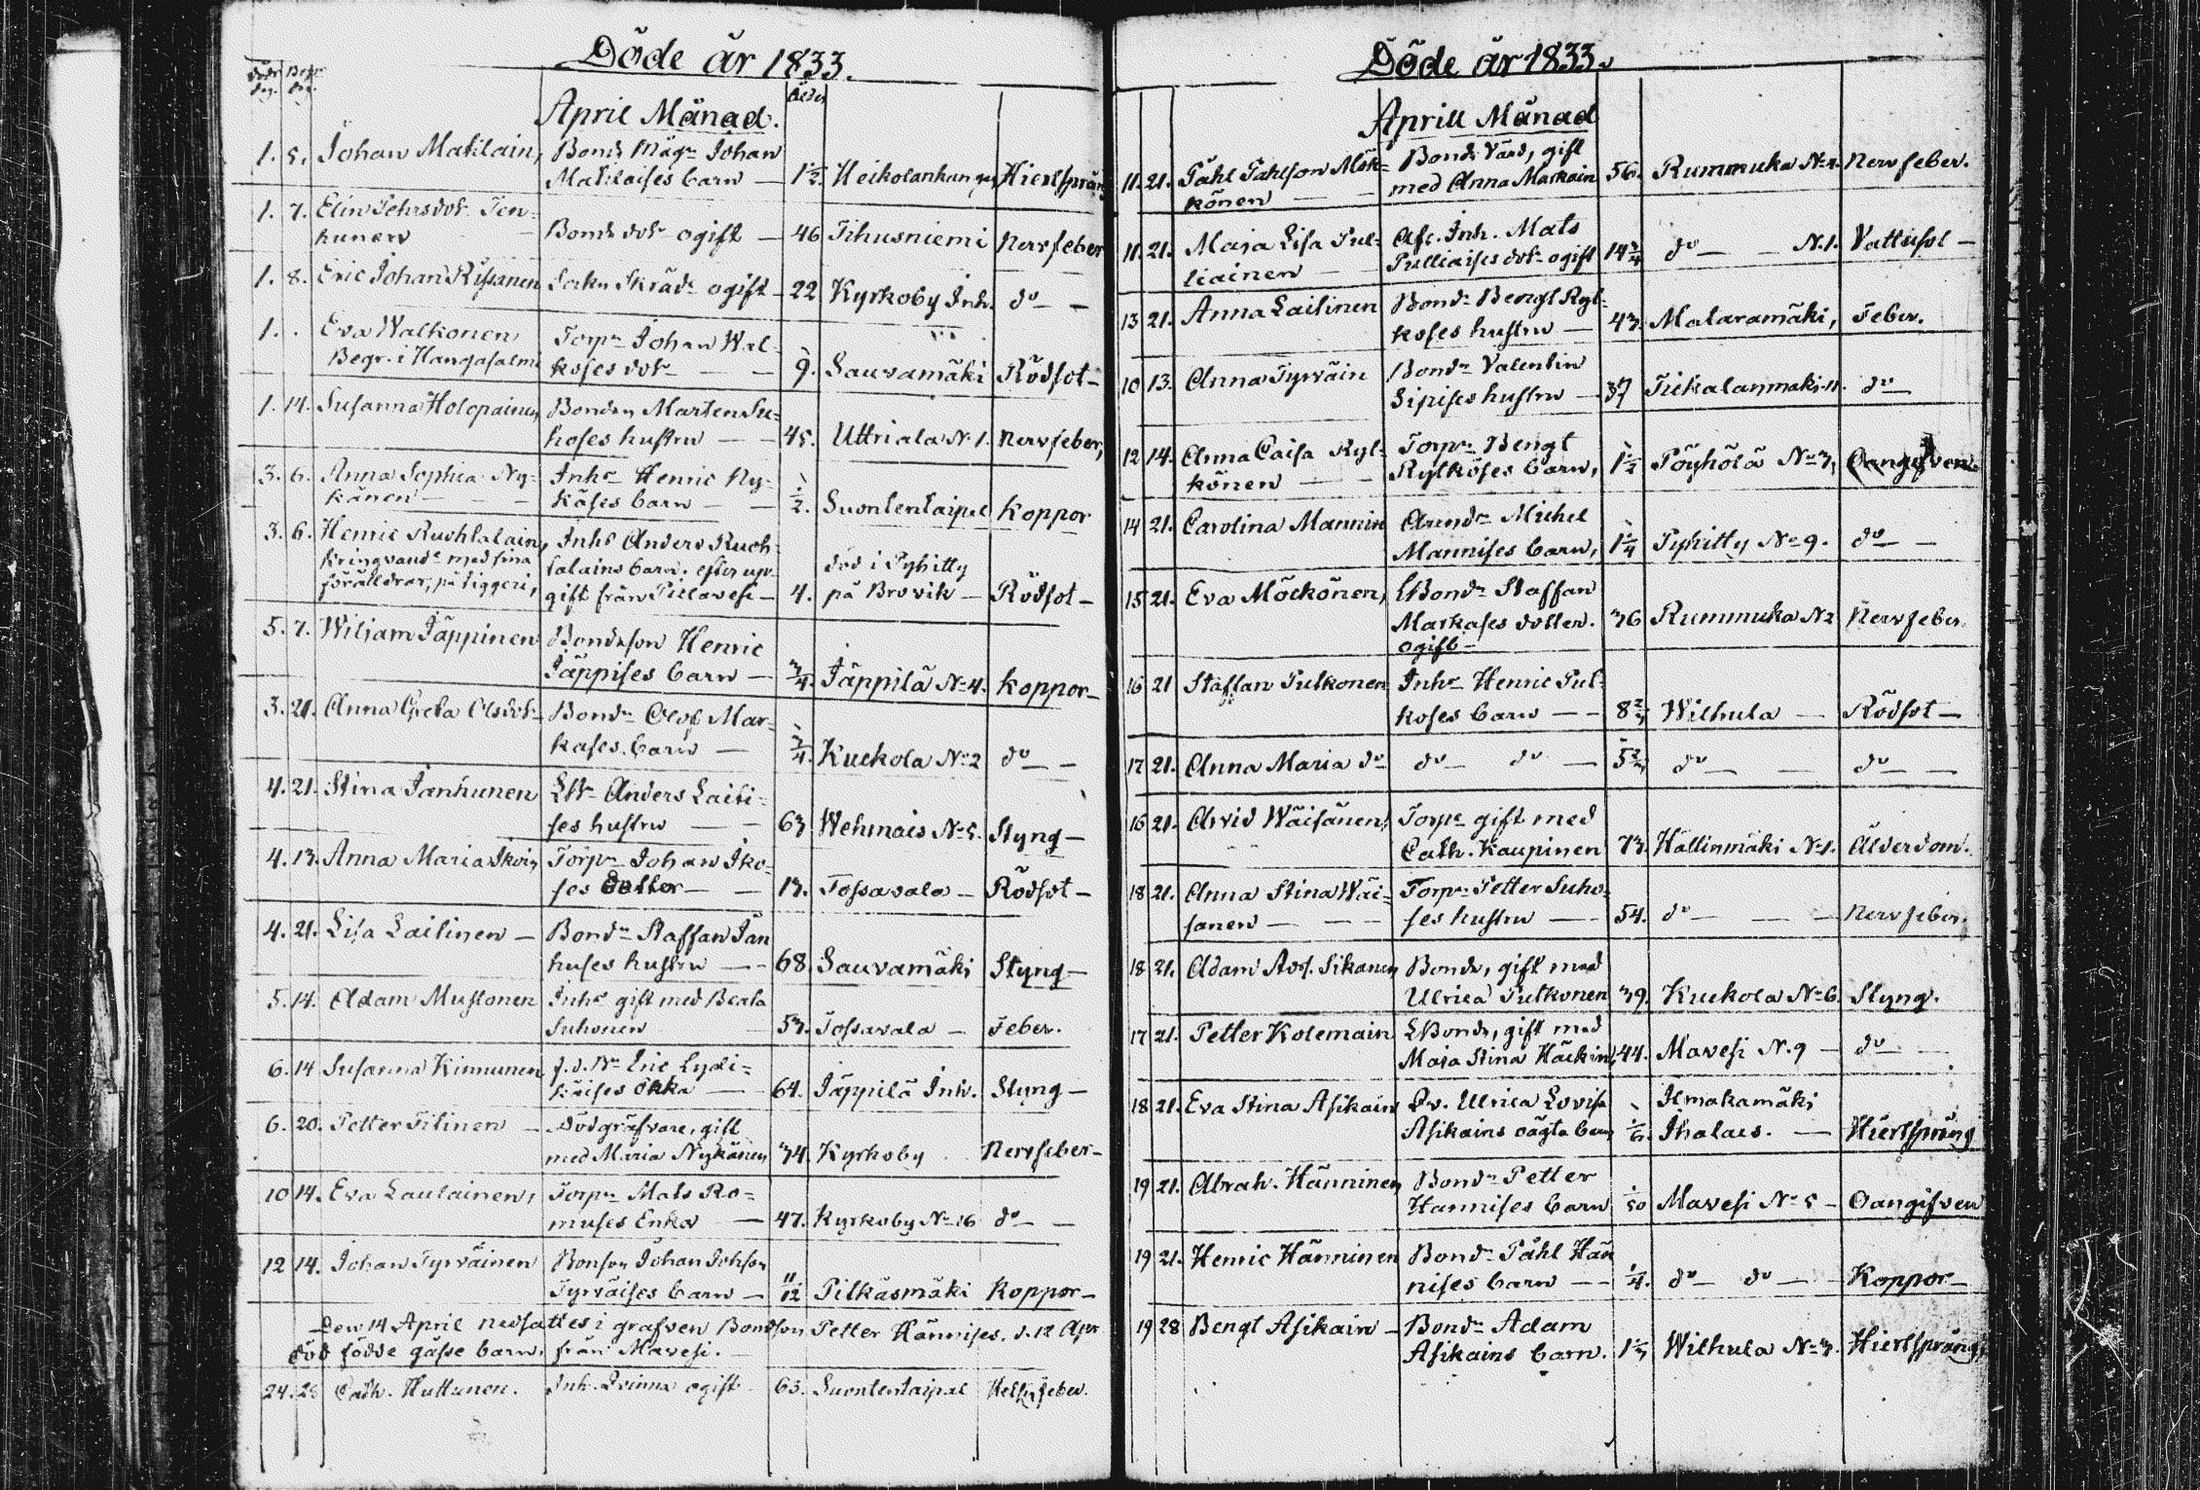 Döde år 1833.
Döds dag. Begr. dag.
April Månad. Ålder
1. 5. Johan Matilain, Bonds Måg Johan
Matilaises barn — 1½. Heikolankangas Hiertsprång
1. 7. Elin Pehrsdotr Ten-
hunen Bonde dotr ogift — 46 Tihusniemi Nervfeber
1. 8. Eric Johan Rissanen Sockn Skrädr ogift — 22 Kyrkoby Inh. do —
1. . Eva Walkonen Torpn Johan Wal-
Begr. i Hangasalmi koses dotr — 9. Sauvamäki Rödsot —
1. 14. Susanna Holopainen, Bonden Mårten Su-
hoses hustru — 45. Uttriala No 1. Nervfeber,
3. 6. Anna Sophia Ny- Inhs Henric Ny-
känen — käses barn — ½. Suontentaipal Koppor
3. 6. Henric Ruohtalain, Inhs Anders Ruoh-
kringvandr med sina talains barn, efter upp- död i Pyhitty
föräldrar, på tiggeri, gift från Pielavesi — 4. på Brovik — Rödsot —
5. 7. Wiliam Jäppinen Bondeson Henric
Jäppises barn — ¾. Jäppilä No 4. Koppor —
3. 21. Anna Greta Olsdotr Bonden Olof Mar-
kases barn — ¾. Kuckola No 2 do —
4. 21. Stina Janhunen LBn Anders Laiti-
ses hustru — 63 Wehmais No 5. Styng —
4. 13. Anna Maria Ikoin, Torpn Johan Iko-
ses dotter — 13. Tossavala — Rödsot —
4. 21. Lisa Laitinen — Bondn Staffan Jan
huses hustru — 68. Sauvamäki Styng —
5. 14. Adam Mustonen Inhs gift med Beata
Suhonen 53. Tossavala — Feber.
6. 14 Susanna Kinnunen f.d. Bn Eric Lydi-
käises Enka — 64. Jäppilä Inh. Styng —
6. 20. Petter Titinen — Dödgräfvare, gift
med Maria Nykänen 34. Kyrkoby Nervfeber —
10 14. Eva Laulainen, Torpn Mats Ro-
muses Enka — 47. Kyrkoby No 16 do —
12 14. Johan Tyrväinen Bonson Johan Johson
Tyrväises barn — 11/12 Pitkäsmäki Koppor —
Den 14 April nedsattes i grafven Bondson Petter Hännises, d. 12 Apr
död födde gosse barn, från Mavesi.
24. 28 Cath. Huttunen. Inh. Qvinna ogift 63. Suontentaipal Hetsigfeber.
Döde år 1833.
Aprill Månad
11. 21. Påhl Påhlson Mök- Bonde Värd, gift
könen — med Anna Markain 56. Rummuka No 2. Nervfeber.
11. 21. Maja Lisa Pul- Afl. Inh. Mats
liainen — Pulliaises dotr ogift 14¾ do — No 1. Vattusot —
13 21. Anna Laitinen Bondn Bengt Ryl-
koses hustru — 43. Mataramäki, Feber.
10 13. Anna Tyrväin Bondn Valentin
Sipises hustru — 37 Tiekalanmaki 11. do —
12 14. Anna Caisa Ryl- Torpn Bengt
könen — Rylköses barn, 1½ Pöyhölä No 3, Oangifven.
14 21. Carolina Mannin Arendn Michel
Mannises barn, 1¼ Pyhitty No 9. do —
15 21. Eva Möckönen, LBondn Staffan
Markases dotter. 36 Rummuka No 2 Nervfeber.
ogift —
16 21 Staffan Pulkonen Inhs Henric Pul-
koses barn — 8⅔ Wilhula — Rödsot —
17 21. Anna Maria do do — do — 5⅔ do — do —
16 21. Arvid Wäisänen, Torpe gift med
Cath. Kaupinen 73. Hällinmäki No 1. Ålderdom.
18 21. Anna Stina Wäi- Torpn Petter Suho-
sänen — ses hustru — 54. do — Nervfeber.
18 21. Adam Ads. Sikanen Bonde, gift med
Ulrica Pulkonen 39. Kuckola No 6. Styng.
17 21. Petter Kolemain LBonde, gift med
Maja Stina Häckin, 44. Mavesi No 9 — do —
18 21. Eva Stina Asikain Qv. Ulrica Lovisa Ilmakamäki
Asikains oägta barn ⅙. Ihalaes. — Hiertsprång
19 21. Abrah. Hänninen Bondn Petter
Hännises barn 1/50 Mavesi No 5 — Oangifven
19 21. Henric Hänninen Bondn Påhl Hän
nises barn — ¼. do — do — Koppor —
19 28 Bengt Asikain — Bondn Adam
Asikains barn. 1⅓ Wilhula No 3. Hiertsprång,